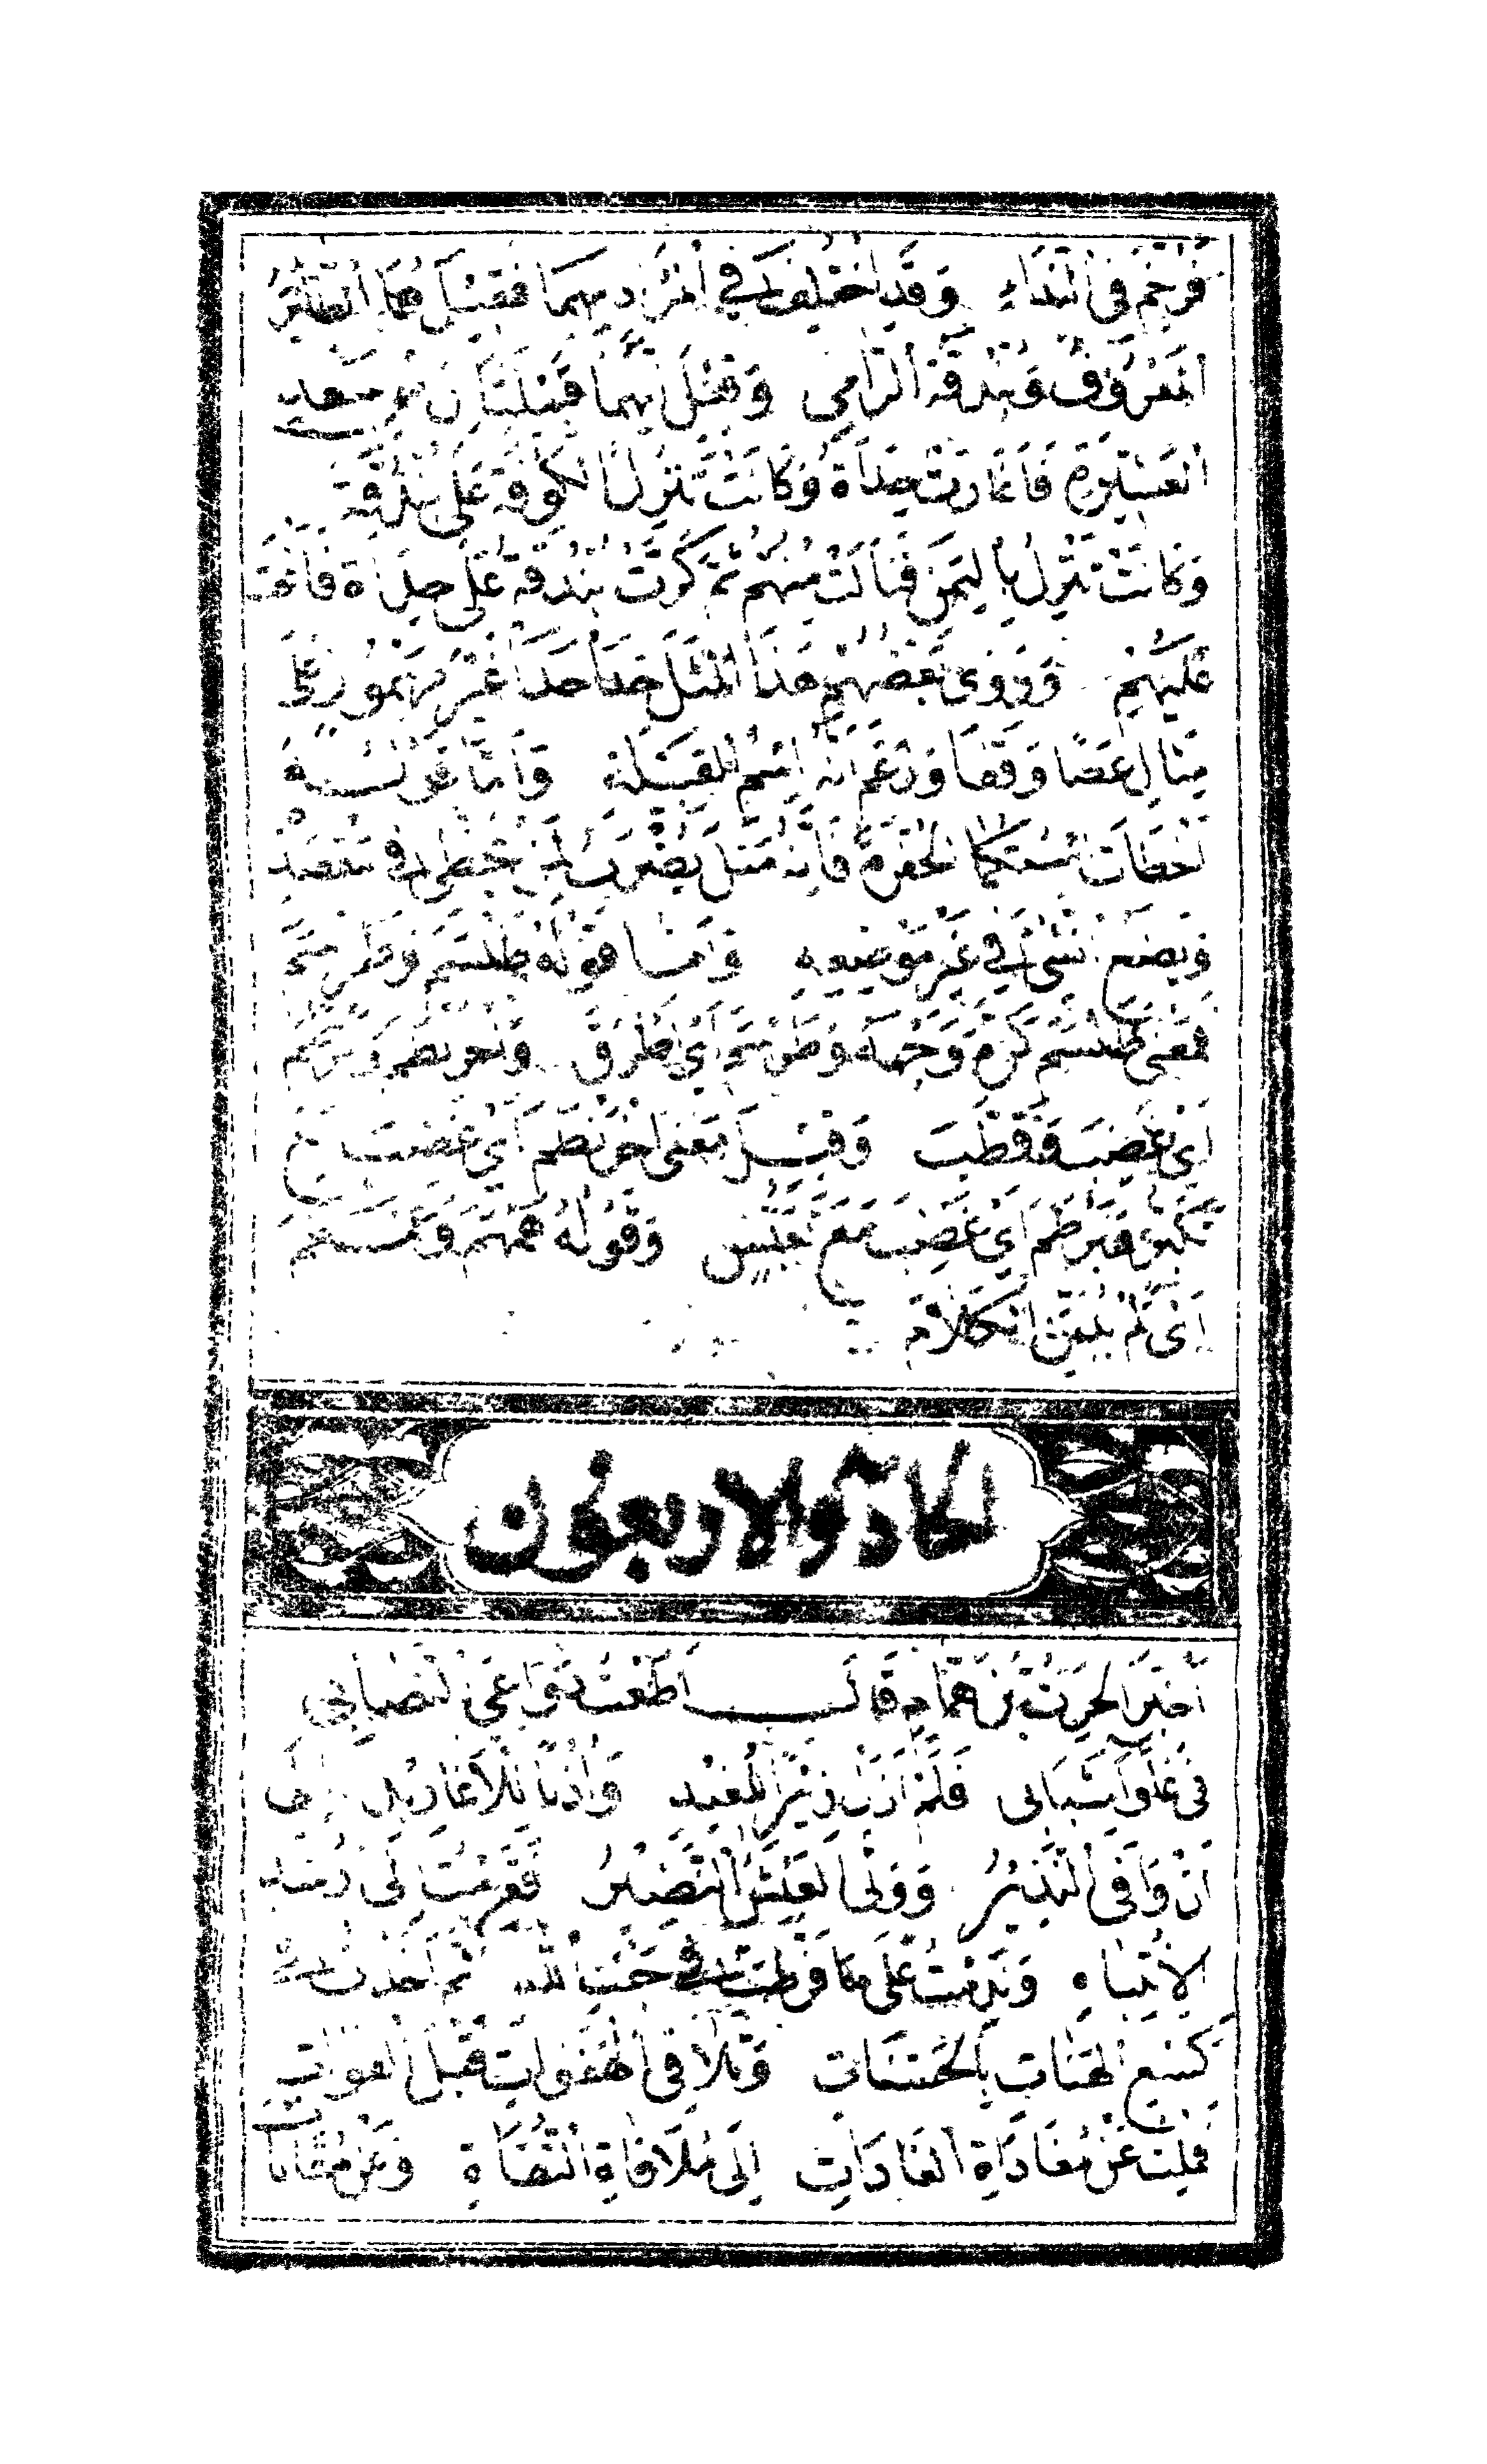 فَرُخِّمَ فِي النِّدَاءِ وَقَدِ اخْتُلِفَ فِي الْمُرَادِ بِهِمَا فَقِيلَ هُمَا الطَّائِرُ
الْمَعْرُوفُ وَبُنْدُقَةُ الرَّامِي وَقِيلَ إِنَّهُمَا قَبِيلَتَانِ مِنْ سَعْدِ
الْعَشِيرَةِ فَأَغَارَتْ حِدَأَةُ وَكَانَتْ تَنْزِلُ الْكُوفَةَ عَلَى بُنْدُقَةَ
وَكَانَتْ تَنْزِلُ بِالْيَمَنِ فَنَالَتْ مِنْهُمْ ثُمَّ كَرَّتْ بُنْدُقَةُ عَلَى حِدَأَةَ فَأَنْحَتْ
عَلَيْهِمْ وَرَوَى بَعْضُهُمْ هَذَا الْمَثَلَ حَدَا حَدَا غَيْرَ مَهْمُوزٍ عَلَى
مِثَالِ عَصًا وَقَفًا وَزَعَمَ أَنَّهُ اسْمُ الْقَبِيلَةِ وَأَمَّا قَوْلُهُ
أَخْطَأَتْ اسْتُكَ الْحُفْرَةَ فَإِنَّهُ مَثَلٌ يُضْرَبُ لِمَنْ يُخْطِئُ فِي مَقْصَدِهِ
وَيَضَعُ الشَّيْءَ فِي غَيْرِ مَوْضِعِهِ وَأَمَّا قَوْلُهُ طَلْسَمَ وَطَرْسَمَ
فَمَعْنَى طَلْسَمَ كَرَّهَ وَجْهَهُ وَطَرْسَمَ أَيْ أَطْرَقَ وَاخْرَنْطَمَ وَبَرْطَمَ
أَيْ غَضِبَ وَقَطَّبَ وَقِيلَ مَعْنَى اخْرَنْطَمَ أَيْ غَضِبَ مَعَ
تَكَبُّرٍ وَبَرْطَمَ أَيْ غَضِبَ مَعَ تَعَبُّسٍ وَقَوْلُهُ هَمْهَمَ وَتَمْتَمَ
أَيْ لَمْ يُبَيِّنِ الْكَلَامَ
الحادية والاربعون
أَخْبَرَ الْحَرِثُ بْنُ هَمَّامٍ قَالَ أَطَعْتُ دَوَاعِيَ التَّصَابِي
فِي غُلَوَاءِ شَبَابِي فَلَمْ أَزَلْ زِيرًا لِلْغِيدِ وَأُذُنًا لِلْأَغَارِيدِ إِلَى
أَنْ وَافَى النَّذِيرُ وَوَلَّى الْعَيْشُ النَّضِيرُ فَقَرِمْتُ إِلَى رُشْدِ
الْاِنْتِبَاهِ وَنَدِمْتُ عَلَى مَا فَرَّطْتُ فِي جَنْبِ اللّٰهِ ثُمَّ أَخَذْتُ فِي
كَسْعِ الْهَنَاتِ بِالْحَسَنَاتِ وَتَلَافِي الْهَفَوَاتِ قَبْلَ الْفَوَاتِ
فَمِلْتُ عَنْ مُغَادَاةِ الْغَادَاتِ إِلَى مُلَاقَاةِ التُّقَاةِ وَعَنْ مُقَانَاةِ